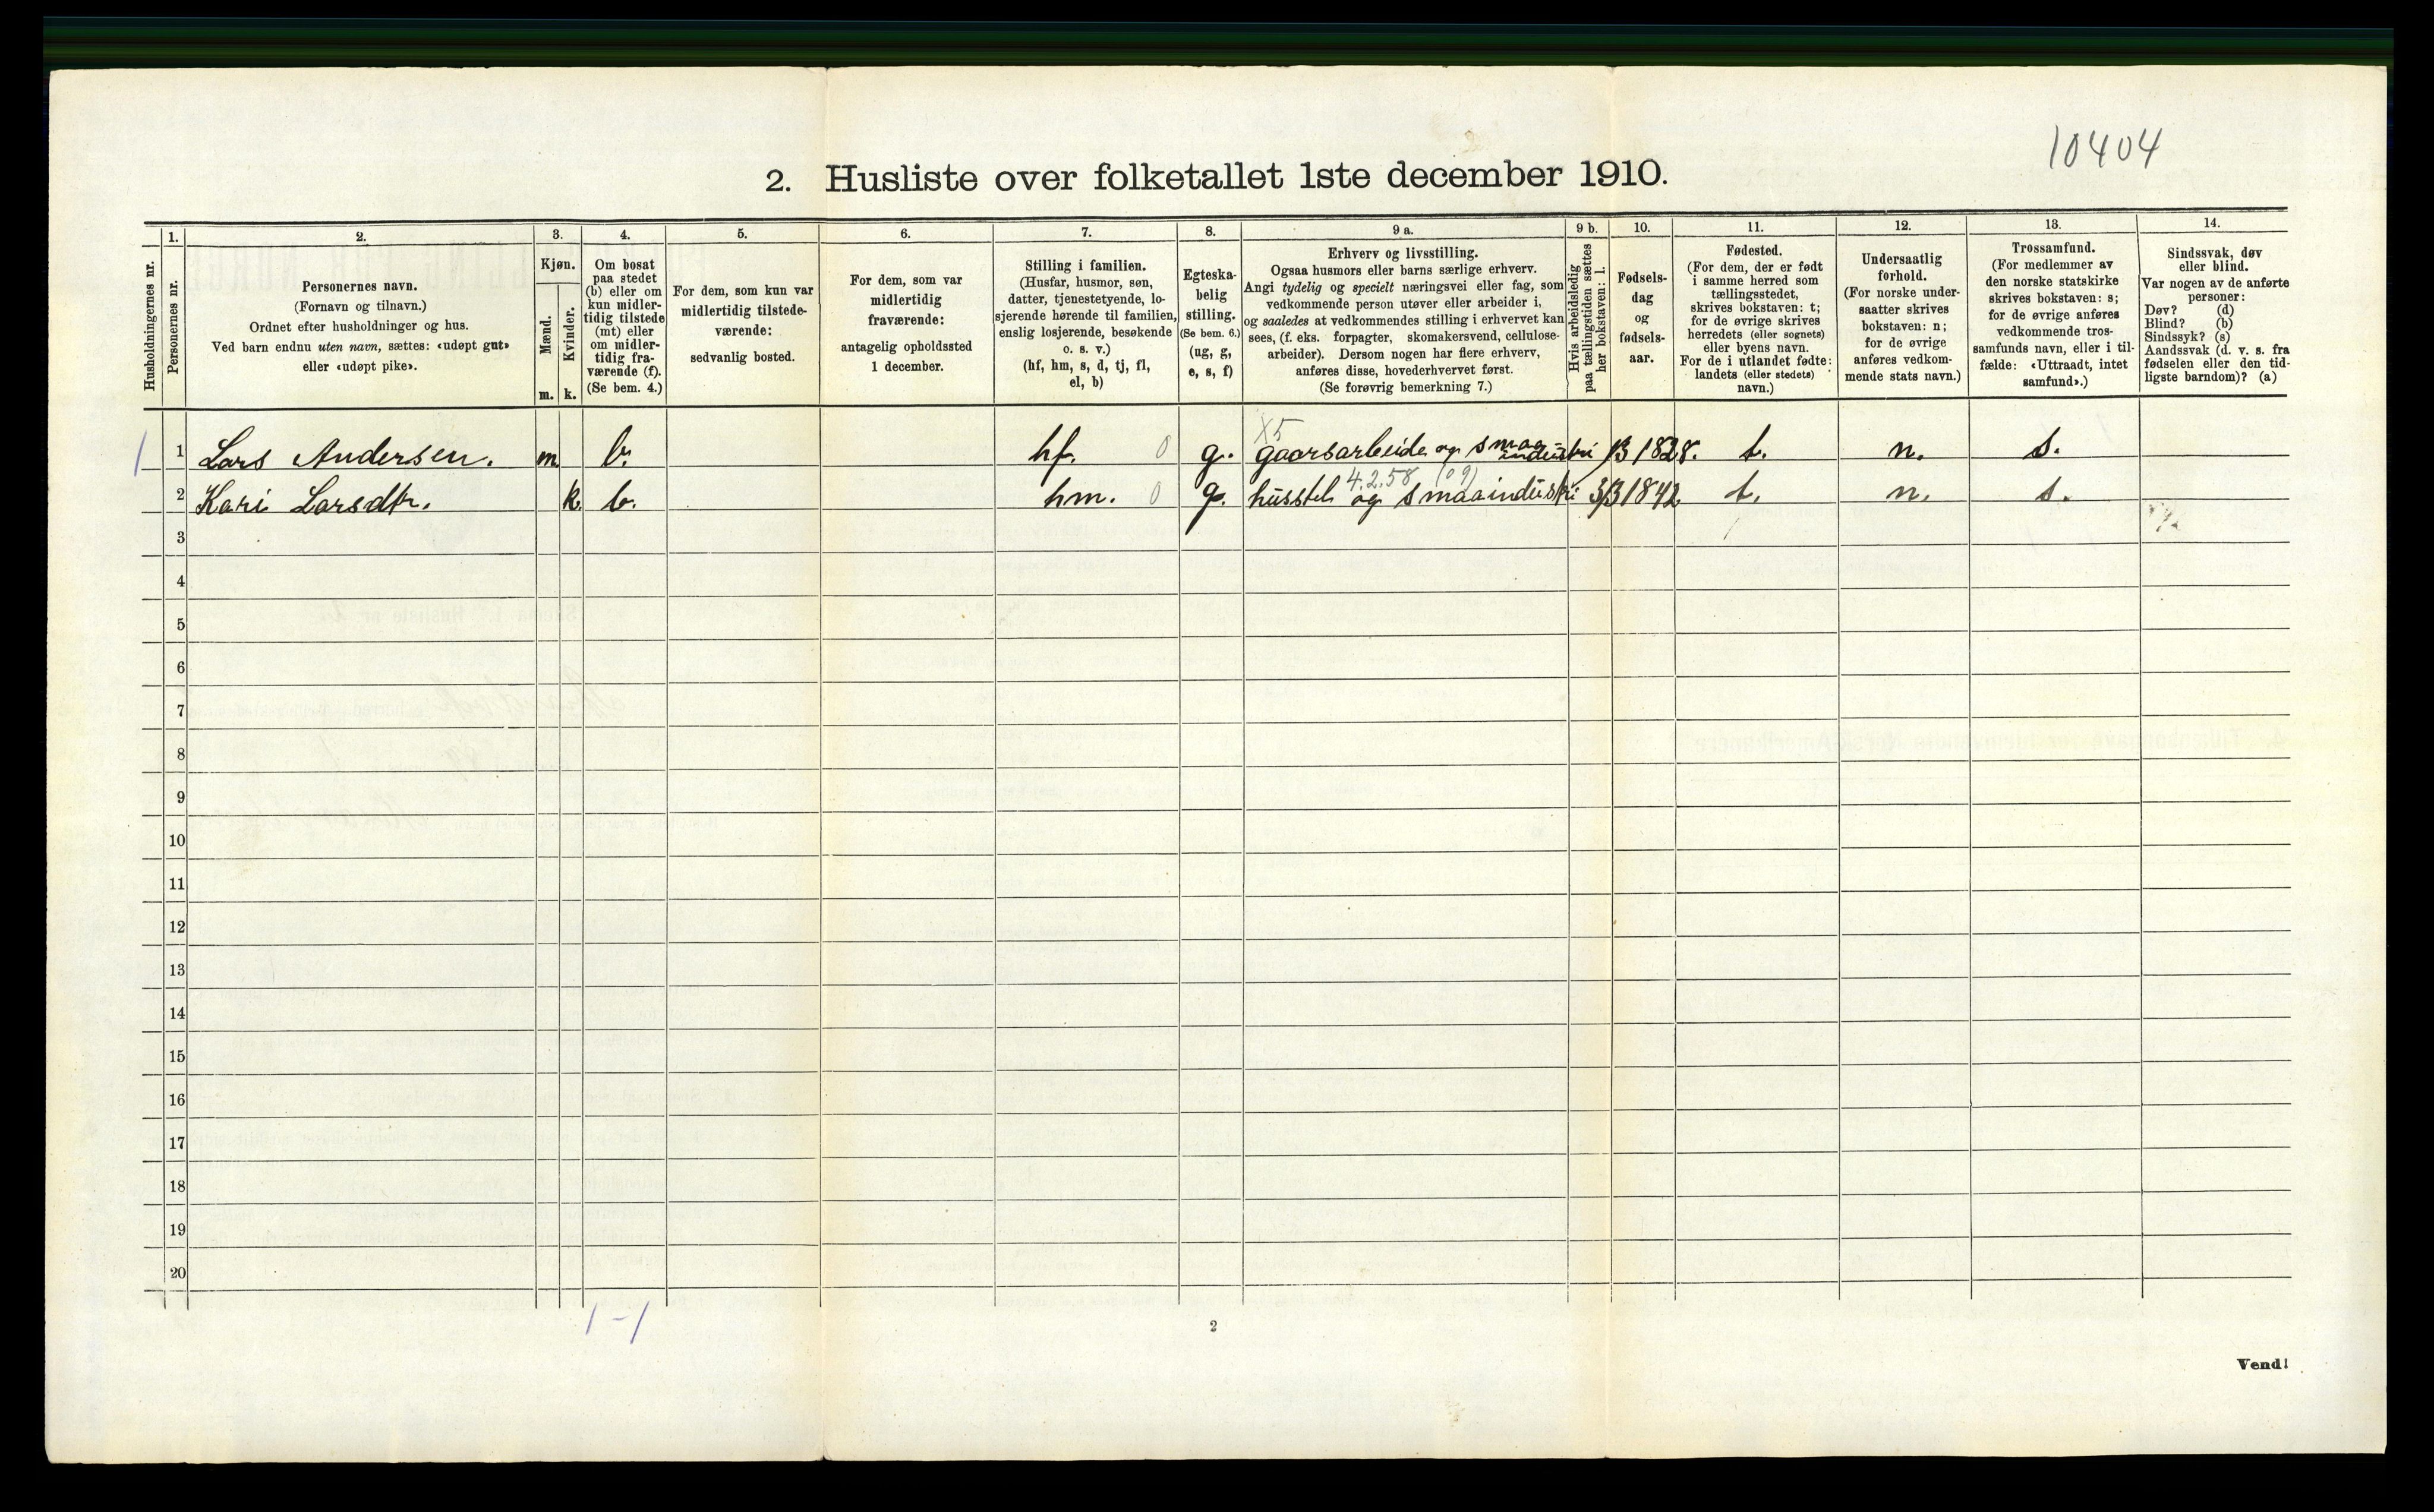 10404
2. Husliste over folketallet 1ste december 1910.
Husholdningernes nr.
1.
Personernes nr.
2.
Personernes navn.
(Fornavn og tilnavn.)
Ordnet efter husholdninger og hus.
Ved barn endnu uten navn, sættes: «udøpt gut»
eller «udøpt pike».
3.
Kjøn.
Mænd.
Kvinder.
m. k.
4.
Om bosat
paa stedet
(b) eller om
kun midler-
tidig tilstede
(mt) eller
om midler-
tidig fra-
værende (f).
(Se bem. 4.)
5.
For dem, som kun var
midlertidig tilstede-
værende:
sedvanlig bosted.
6.
For dem, som var
midlertidig
fraværende:
antagelig opholdssted
1 december.
7.
Stilling i familien.
(Husfar, husmor, søn,
datter, tjenestetyende, lo-
sjerende hørende til familien,
enslig losjerende, besøkende
o. s. v.)
(hf, hm, s, d, tj, fl,
el, b)
8.
Egteska-
belig
stilling.
(Se bem. 6.)
(ug, g,
e, s, f)
9 a.
Erhverv og livsstilling.
Ogsaa husmors eller barns særlige erhverv.
Angi tydelig og specielt næringsvei eller fag, som
vedkommende person utøver eller arbeider i,
og saaledes at vedkommendes stilling i erhvervet kan
sees, (f. eks. forpagter, skomakersvend, cellulose-
arbeider). Dersom nogen har flere erhverv,
anføres disse, hovederhvervet først.
(Se forøvrig bemerkning 7.)
9 b.
Hvis arbeidsledig
paa tællingstiden sættes
her bokstaven: l.
10.
Fødsels-
dag
og
fødsels-
aar.
11.
Fødested.
(For dem, der er født
i samme herred som
tællingsstedet,
skrives bokstaven: t;
for de øvrige skrives
herredets (eller sognets)
eller byens navn.
For de i utlandet fødte:
landets (eller stedets)
navn.)
12.
Undersaatlig
forhold.
(For norske under-
saatter skrives
bokstaven: n;
for de øvrige
anføres vedkom-
mende stats navn.)
13.
Trossamfund.
(For medlemmer av
den norske statskirke
skrives bokstaven: s;
for de øvrige anføres
vedkommende tros-
samfunds navn, eller i til-
fælde: «Uttraadt, intet
samfund».)
14.
Sindssvak, døv
eller blind.
Var nogen av de anførte
personer:
Døv? (d)
Blind? (b)
Sindssyk? (s)
Aandssvak (d. v. s. fra
fødselen eller den tid-
ligste barndom)? (a)
X5
1 1 Lars Andersen. m. b. hf. 0 g. gaarsarbeide og smaaindustri 1/3 1828. t. n. s.
4.2.58 (09)
2 Kari Larsdtr. k. b. hm. 0 g. husstel og smaaindustri 3/3 1842 t. n. s.
3
4
5
6
7
8
9
10
11
12
13
14
15
16
17
18
19
20
1-1
2
Vend!